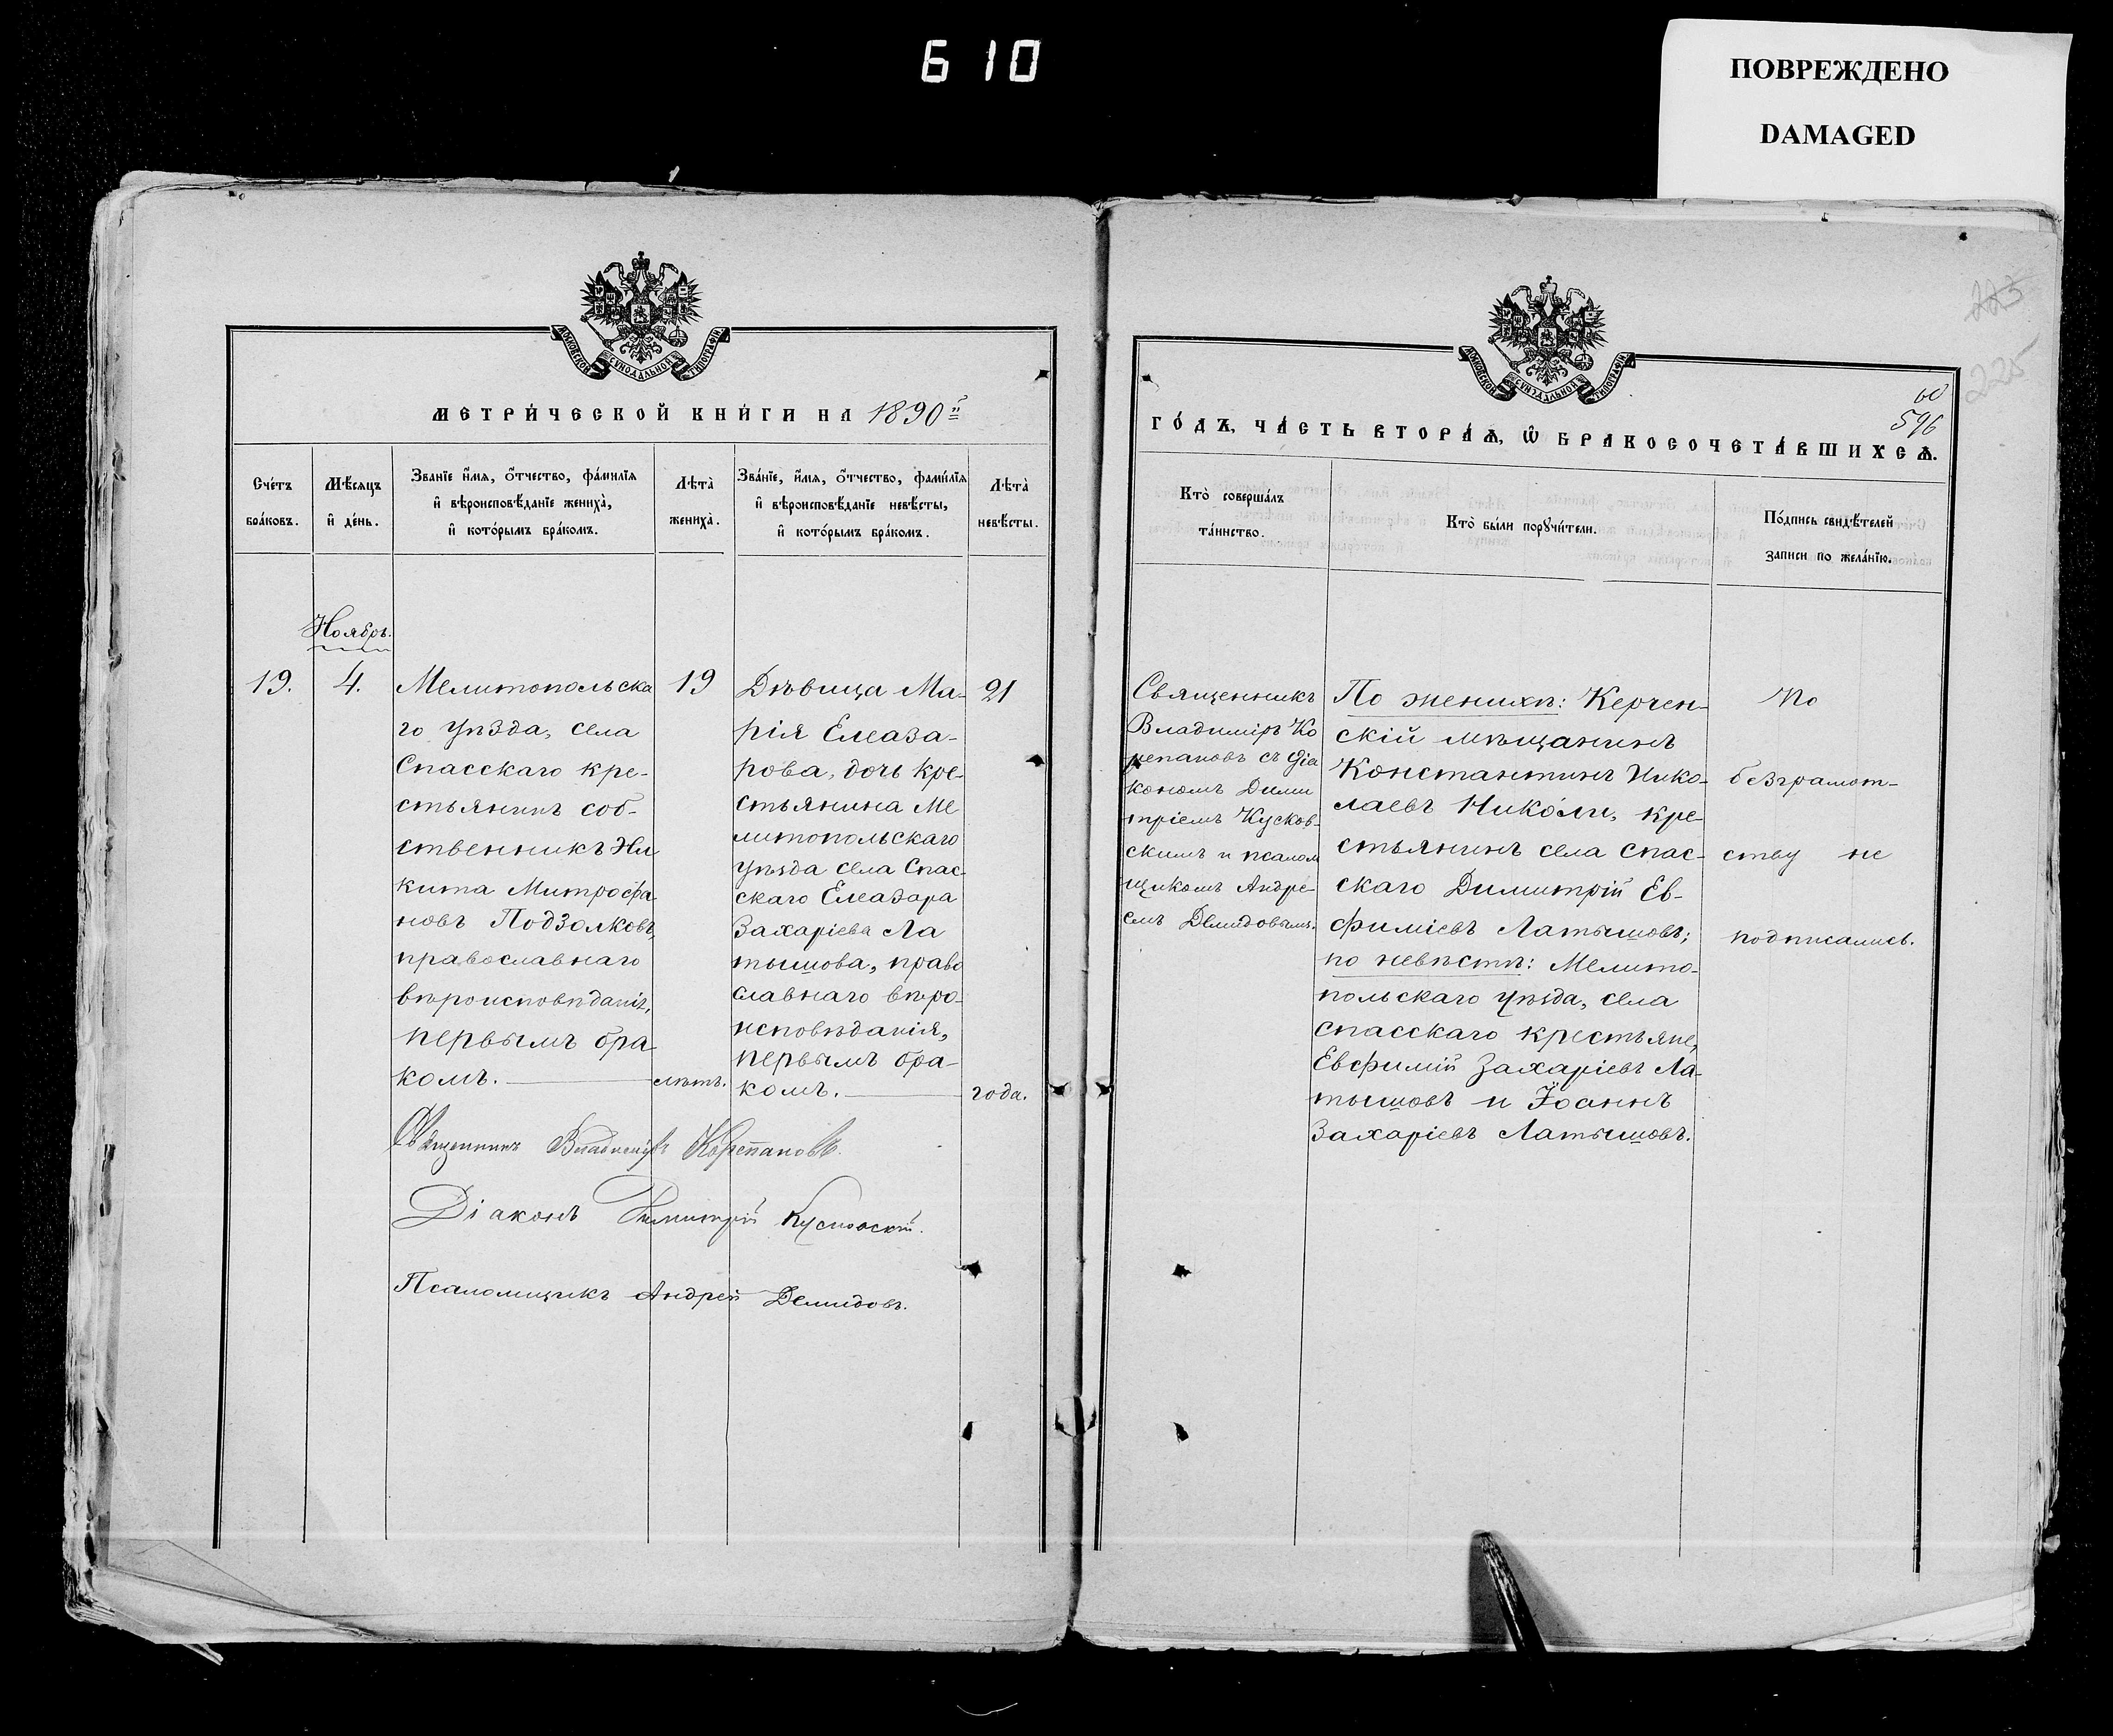 610
ПОВРЕЖДЕНО
DAMAGED
МОСКОВСКОЙ СѴНОДАЛЬНОЙ ТИПОГРАФІИ
МЕТРИ́ЧЕСКОЙ КНИ́ГИ НА 1890й
Сче́тъ бра́ковъ.
Мѣ́сяцъ и҆ де́нь.
Зва́нїе и҆́мя, ѻ҆́тчество, фамі́лїя и҆ вѣроисповѣ́данїе жениха̀, и҆ кото́рымъ бра́комъ.
Лѣ́та̀ жениха̀.
Зва́нїе, и҆́мя, ѻ҆́тчество, фами́лїя и҆ вѣроисповѣ́данїе невѣ́сты, и҆ кото́рымъ бра́комъ.
Лѣ́та̀ невѣ́сты.
Ноябрь.
19.
4.
Мелитопольска
го уѣзда, села
Спасскаго кре-
стьянинъ соб-
ственникъ Ни
кита Митрофа
новъ Подзолковъ,
православнаго
вѣроисповѣданія,
первымъ бра
комъ.
19
лѣтъ.
Дѣвица Ма-
рія Елеаза-
рова, дочь кре-
стьянина Ме
литопольскаго
уѣзда села Спас-
скаго Елеазара
Захаріева Ла
тышова, право
славнаго вѣро-
исповѣданія,
первымъ бра-
комъ.
21
года.
Священникъ Владиміръ Корепановъ.
Діаконъ Димитрій Кусковскій.
Псаломщикъ Андрей Демидовъ.
МОСКОВСКОЙ СѴНОДАЛЬНОЙ ТИПОГРАФІИ
223
225
60
596
ГО́ДЪ, ЧА́СТЬ ВТОРА́Ѧ, Ѽ БРАКОСОЧЕТА́ВШИХСѦ.
Кто̀ соверша́лъ та́инство.
Кто̀ бы́ли порꙋчи́тели.
По́дпись свидѣ́телей записи по жела́нїю.
Священникъ
Владиміръ Ко
репановъ съ діа
кономъ Дими
тріемъ Кусков-
скимъ и псалом
щикомъ Андре-
емъ Демидовымъ.
По женихѣ: Керчен-
скій мѣщанинъ
Константинъ Нико-
лаевъ Нико́ли, кре-
стьянинъ села Спас-
скаго Димитрій Ев-
фиміевъ Латышовъ;
по невѣстѣ: Мелито-
польскаго уѣзда, села
Спасскаго крестьяне,
Евфимій Захаріевъ Ла-
тышовъ и Іоаннъ
Захаріевъ Латышовъ.
По
безграмот-
ству не
подписались.